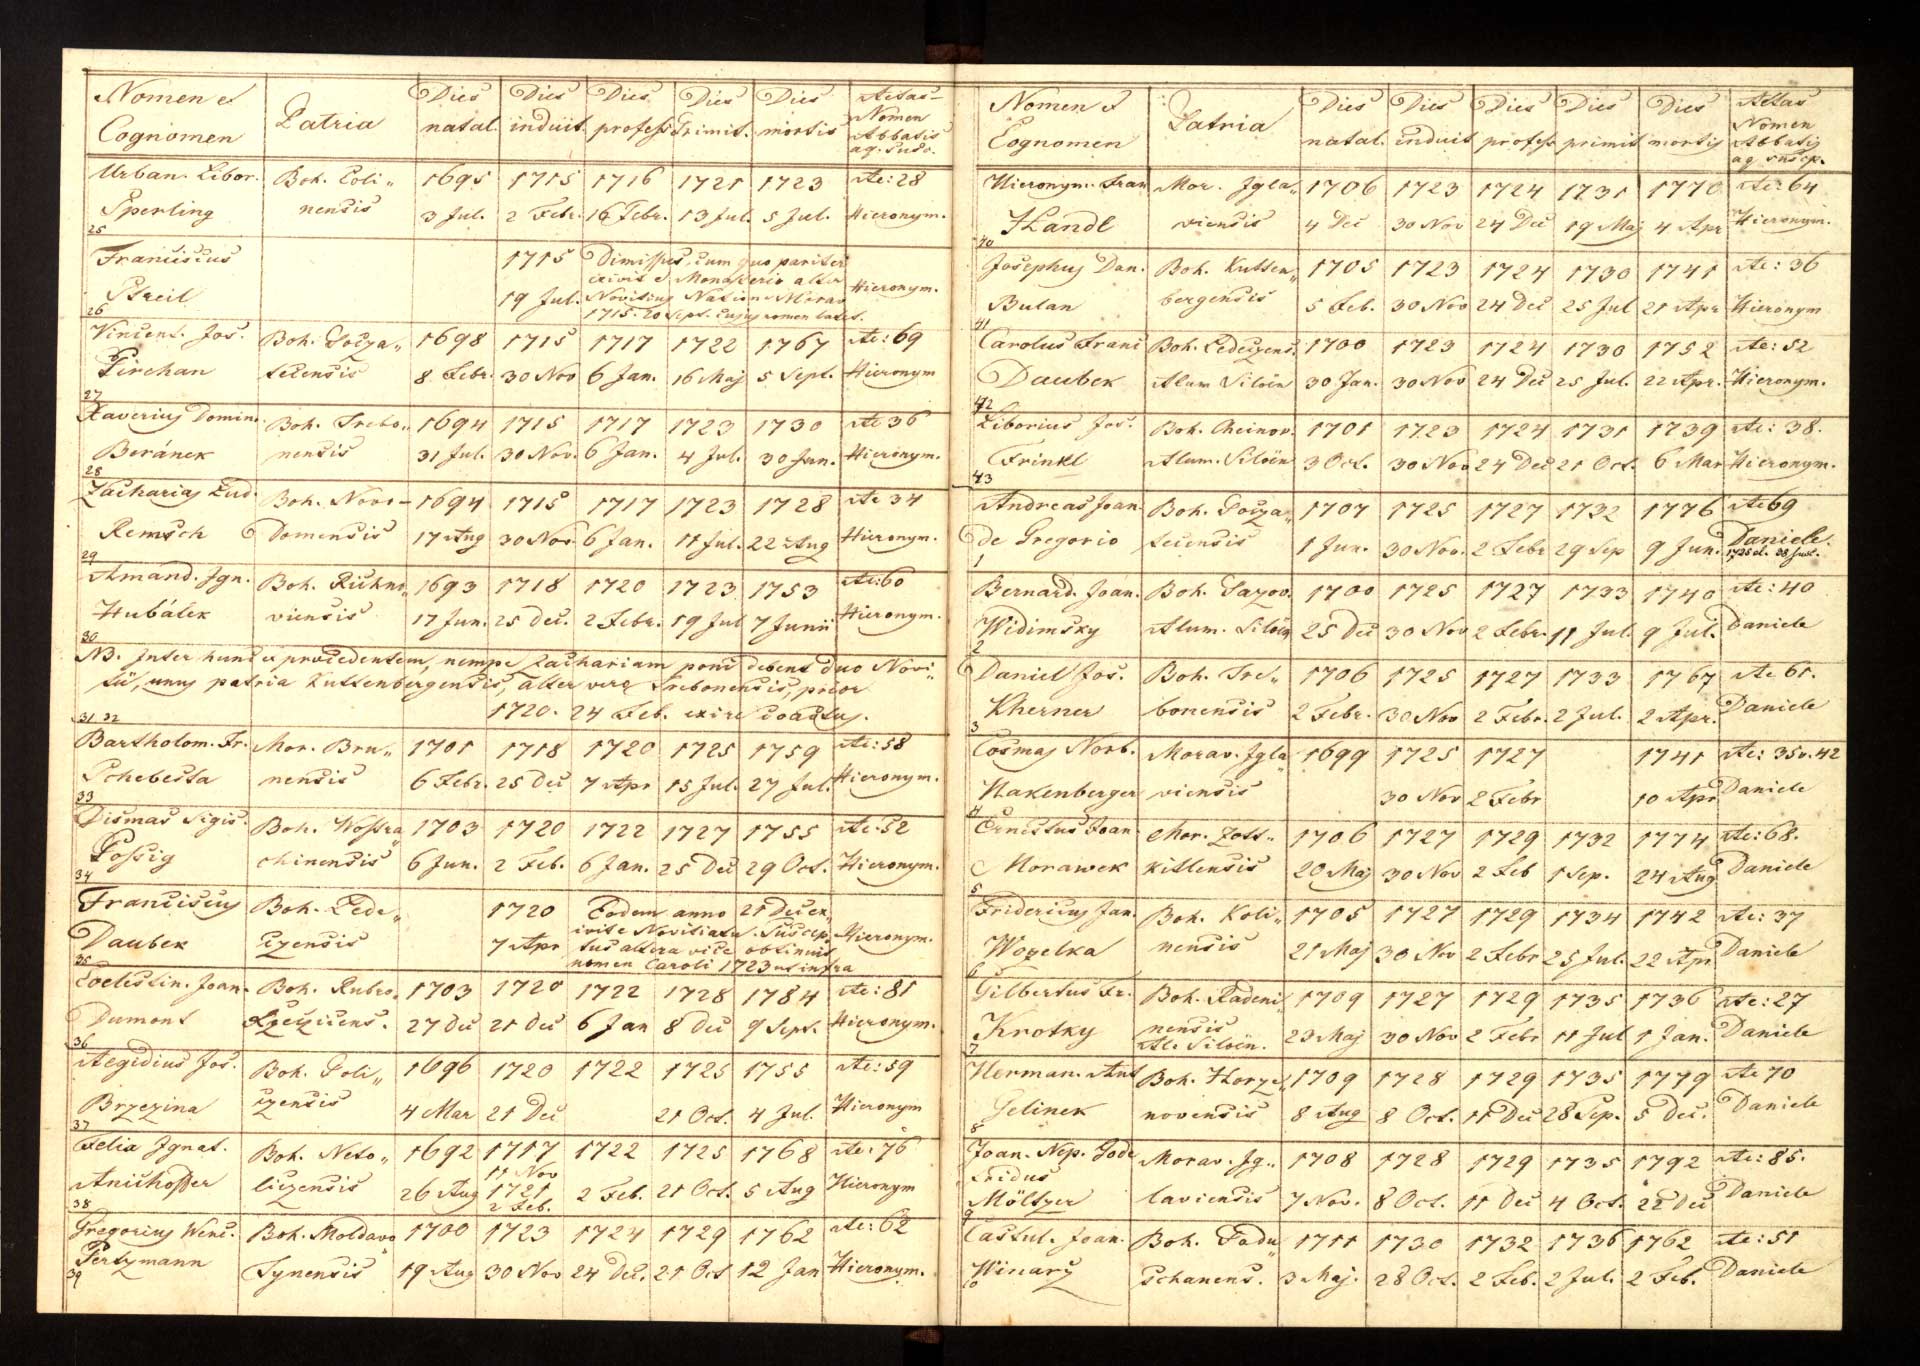 Nomen et Patria Dies Dies Dies Dies Dies Aetas
Cognomen natal. induit. profess. Primit. mortis Nomen Abbatis aq. susc.
Urban. Libor. Boh. Coli„ 1695 1715 1716 1721 1723 Ae: 28
Sperling nensis 3 Jul. 2 Febr. 16 Febr. 13 Jul. 5 Jul. Hieronym.
25
Franciscus 1715 Dimissus, cum quo pariter
exivit e Monasterio alter
Streil 19 Jul. Novitius Natione Morav. Hieronym.
26 1715. 20 Sept. cujus nomen latet.
Vincent. Jos. Boh. Goiza„ 1698 1715 1717 1722 1767 Ae: 69
Pirchan tecensis 8 Febr. 30 Nov 6 Jan. 16 Maj 5 Sept. Hieronym
27
Xaverius Domin. Boh. Trebo„ 1694 1715 1717 1723 1730 Ae 36
Beránek nensis 31 Jul. 30 Nov. 6 Jan. 4 Jul. 30 Jan. Hieronym.
28
Zacharias Lud. Boh. Novo- 1694 1715 1717 1723 1728 Ae 34
Remsch Domensis 17 Aug 30 Nov 6 Jan. 11 Jul. 22 Aug Hieronym.
29
Amand. Jgn. Boh. Richno„ 1693 1718 1720 1723 1753 Ae: 60
Hubálek viensis 17 Jun. 25 Dec. 2 Febr. 19 Jul 7 Junii Hieronym.
30
NB. Inter hunc et procedentem, nempe Zachariam poni debent duo Novi„
tii, unus patria Kuttenbergensis, alter vero Trebonensis, prior
31 32 1720. 24 Feb. exire coactus.
Bartholom. Fr. Mor. Bru„ 1701 1718 1720 1725 1759 Ae: 58
Schebesta nensis 6 Febr. 25 Dec 7 Apr 15 Jul. 27 Jul. Hieronym.
33
Dismas Sigis. Boh. Wossra„ 1703 1720 1722 1727 1755 Ae. 52
Possig chinensis 6 Jun. 2 Feb. 6 Jan. 25 Dec 29 Oct. Hieronym.
34
Franciscus Boh. Lede„ 1720 Eodem anno 21 Dec ex„
ivit e Novitiatu. Suscep„
Daubek czensis 7 Apr tus altera vice obtinuit Hieronym.
35 nomen Caroli 1723 ut infra
Coelestin. Joan. Boh. Rubro„ 1703 1720 1722 1728 1784 Ae: 81
Dumont 27 Dec 21 Dec 6 Jan 8 Dec 9 Sept. Hieronym.
36
Aegidius Jos. Boh. Poli„ 1696 1720 1722 1725 1755 Ae: 59
Brzezina czensis 4 Mar 21 Dec 21 Oct. 4 Jul. Hieronym
37
Felix Jgnat. Boh. Neto„ 1692 1717 1722 1725 1768 Ae: 76
11 Nov
Anichoffer liczensis 26 Aug 1721 2 Feb. 21 Oct. 5 Aug Hieronym
38 2 Feb.
Gregorius Wenc. Boh. Moldavo„ 1700 1723 1724 1729 1762 Ae: 62
Pertzmann Tynensis 19 Aug 30 Nov 24 Dec. 21 Oct 12 Jan Hieronym.
39
Nomen et Patria Dies Dies Dies Dies Dies Aetas
Cognomen natal. induit profess. primit mortis Nomen Abbatis aq suscep.
Hieronym. Fran Mor. Jgla„ 1706 1723 1724 1731 1770 Ae: 64
Handl viensis 4 Dec 30 Nov 24 Dec 19 Maj 4 Apr Hieronym.
40
Josephus Dan. Boh. Kutten„ 1705 1723 1724 1730 1741 Ae: 36
Bulan bergensis 5 Feb. 30 Nov 24 Dec 25 Jul 21 Apr Hieronym
41
Carolus Franc Boh. Ledeczens. 1700 1723 1724 1730 1752 Ae: 52
Daubek Alum Siloën 30 Jan. 30 Nov 24 Dec 25 Jul. 22 Apr. Hieronym.
42
Liborius Jos. Boh. Cheinov. 1701 1723 1724 1731 1739 Ae: 38.
Frinkl Alum. Siloën 3 Oct. 30 Nov 24 Dec 21 Oct. 6 Mar Hieronym.
43
Andreas Joan. Boh. Goiza„ 1707 1725 1727 1732 1776 Ae 69
de Gregorio tecensis 1 Jun. 30 Nov. 2 Febr 29 Sep 9 Jun. Daniele.
1
Bernard. Joan. Boh. Sazov. 1700 1725 1727 1733 1740 Ae: 40
Widimsky Alum. Siloën 25 Dec 30 Nov 2 Febr. 11 Jul. 9 Jul. Daniele
2
Daniel Jos. Boh. Tre„ 1706 1725 1727 1733 1767 Ae 61.
Kherner bonensis 2 Febr. 30 Nov 2 Febr. 2 Jul. 2 Apr. Daniele
3
Cosmas Norb. Morav. Jgla„ 1699 1725 1727 1741 Ae: 35 v. 42
Hakenberger viensis 30 Nov 2 Febr 10 Apr Daniele
4
Ernestus Joan Mor. Zott„ 1706 1727 1729 1732 1774 Ae: 68.
Morawek kitlensis 20 Maj 30 Nov 2 Feb 1 Sep. 24 Aug Daniele
5
Fridericus Jan. Boh. Koli„ 1705 1727 1729 1734 1742 Ae: 37
Wozelka nensis 21 Maj 30 Nov 2 Febr 25 Jul. 22 Apr Daniele
6
Gilbertus Fr. Boh. Radeni„ 1709 1727 1729 1735 1736 Ae: 27
Krotky nensis 23 Maj 30 Nov 2 Febr 11 Jul 1 Jan. Daniele
7 Al. Siloën.
Herman. Ant Boh. Horze„ 1709 1728 1729 1735 1779 Ae 70
Gelinek novensis 8 Aug 8 Oct. 11 Dec 28 Sep. 5 Dec. Daniele
8
Joan. Nep. Gode Morav. Jg„ 1708 1728 1729 1735 1792 Ae: 85.
fridus
Möltzer laviensis 7 Nov. 8 Oct. 11 Dec 4 Oct. 22 Dec Daniele
9
Castul. Joan. Boh. Radu„ 1711 1730 1732 1736 1762 Ae: 51
Winarz schanens. 3 Maj. 28 Oct. 2 Feb. 2 Jul. 2 Feb. Daniele
10